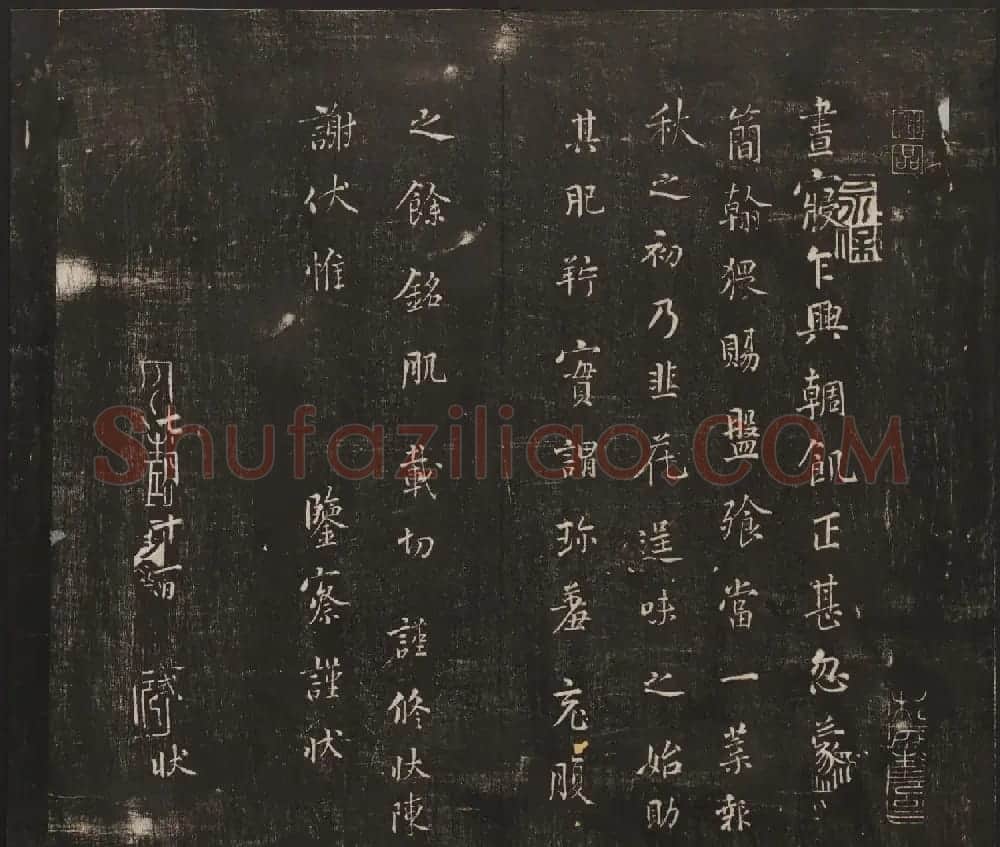 晝寢乍興輖飢正甚忽蒙
簡翰猥賜盤飧當一葉報
秋之初乃韭花逞味之始助
其肥羜實謂珍羞充腹
之餘銘肌載切謹修狀陳
謝伏惟 鑒察謹狀
狀
Shufaziliao.COM